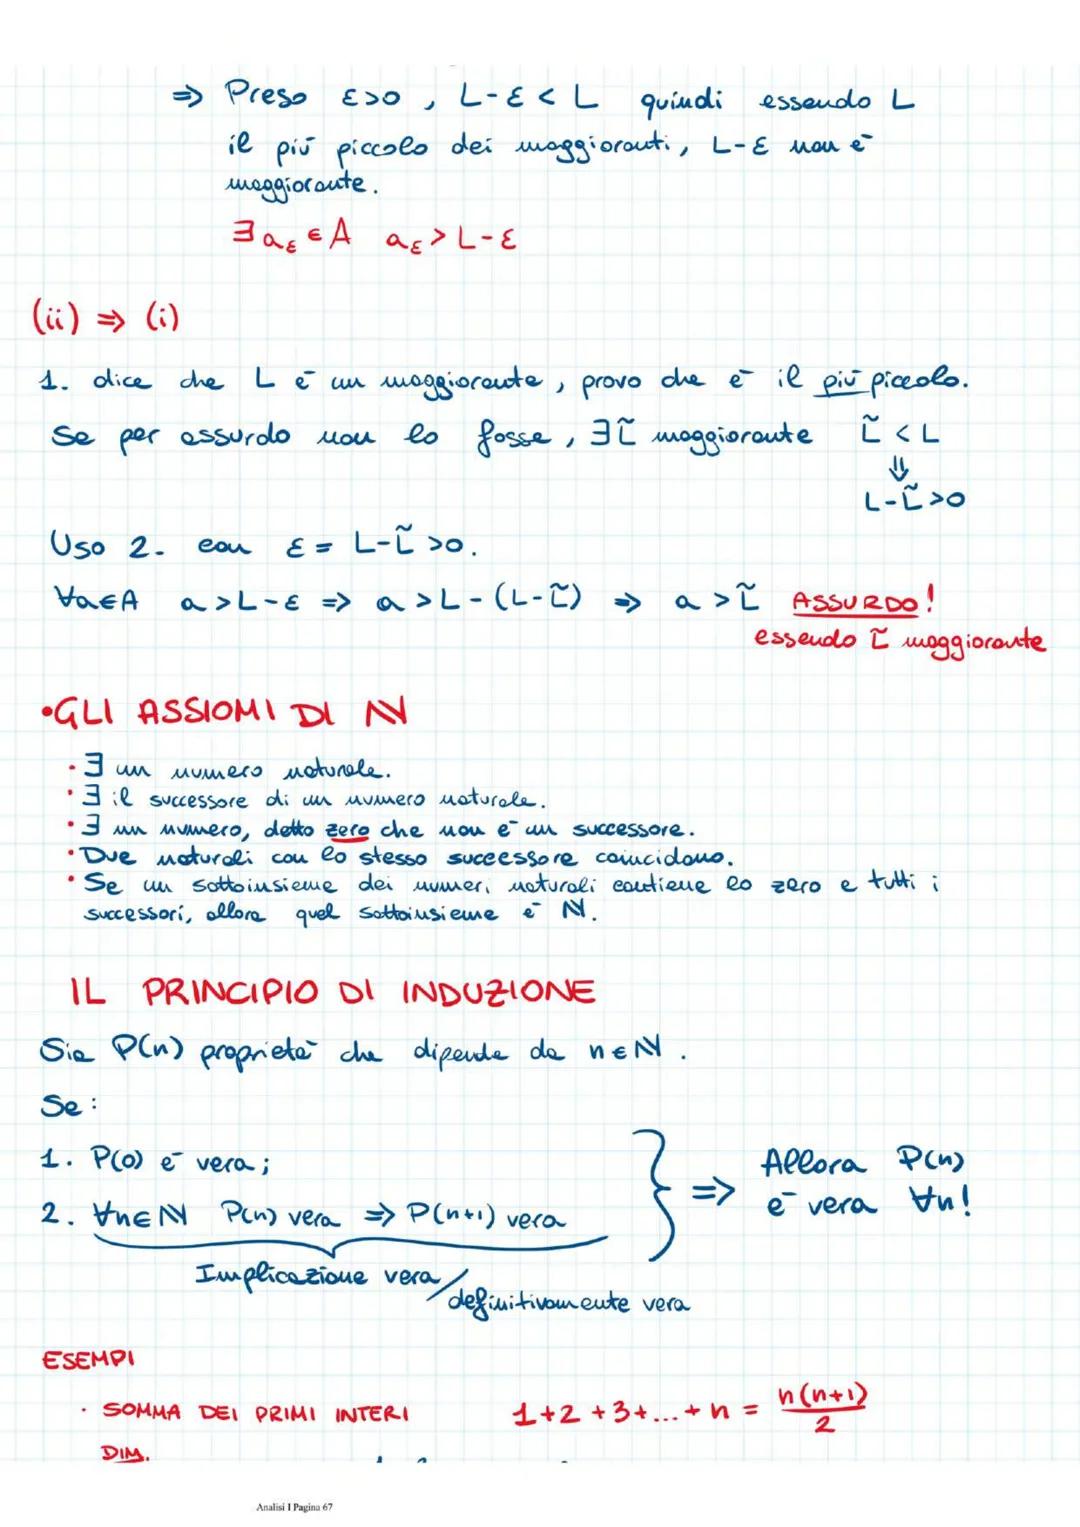 ⇒ Preso ε>0, L-ε < L quindi essendo L
il più piccolo dei maggioranti, L-ε non è
maggiorante.
∃ a_ε ∈ A a_ε > L-ε
(ii) ⇒ (i)
1. dice che L è un maggiorante, provo che è il più piccolo.
Se per assurdo non lo fosse, ∃ L̃ maggiorante L̃ < L
⇓
L-L̃ >0
Uso 2. con ε = L-L̃ >0.
∀a∈A a >L-ε ⇒ a >L-(L-L̃) ⇒ a >L̃ ASSURDO!
essendo L̃ maggiorante
•GLI ASSIOMI DI ℕ
• ∃ un numero naturale.
• ∃ il successore di un numero naturale.
• ∃ un numero, detto zero che non è un successore.
• Due naturali con lo stesso successore coincidono.
• Se un sottoinsieme dei numeri naturali contiene lo zero e tutti i
successori, allora quel sottoinsieme è ℕ.
IL PRINCIPIO DI INDUZIONE
Sia P(n) proprietà che dipende da n∈ℕ.
Se:
1. P(0) è vera;
2. ∀n∈ℕ P(n) vera ⇒ P(n+1) vera
} ⇒ Allora P(n)
è vera ∀n!
Implicazione vera/
definitivamente vera
ESEMPI
• SOMMA DEI PRIMI INTERI 1+2+3+...+n = n(n+1)/2
DIM.
Analisi I Pagina 67